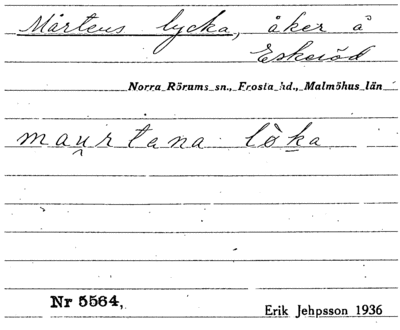 Mårtens lycka, åker å
Eskeröd
Norra Rörums sn., Frosta hd., Malmöhus län
mau̯rtana lò̱ka
Nr 5564,
Erik Jehpsson 1936